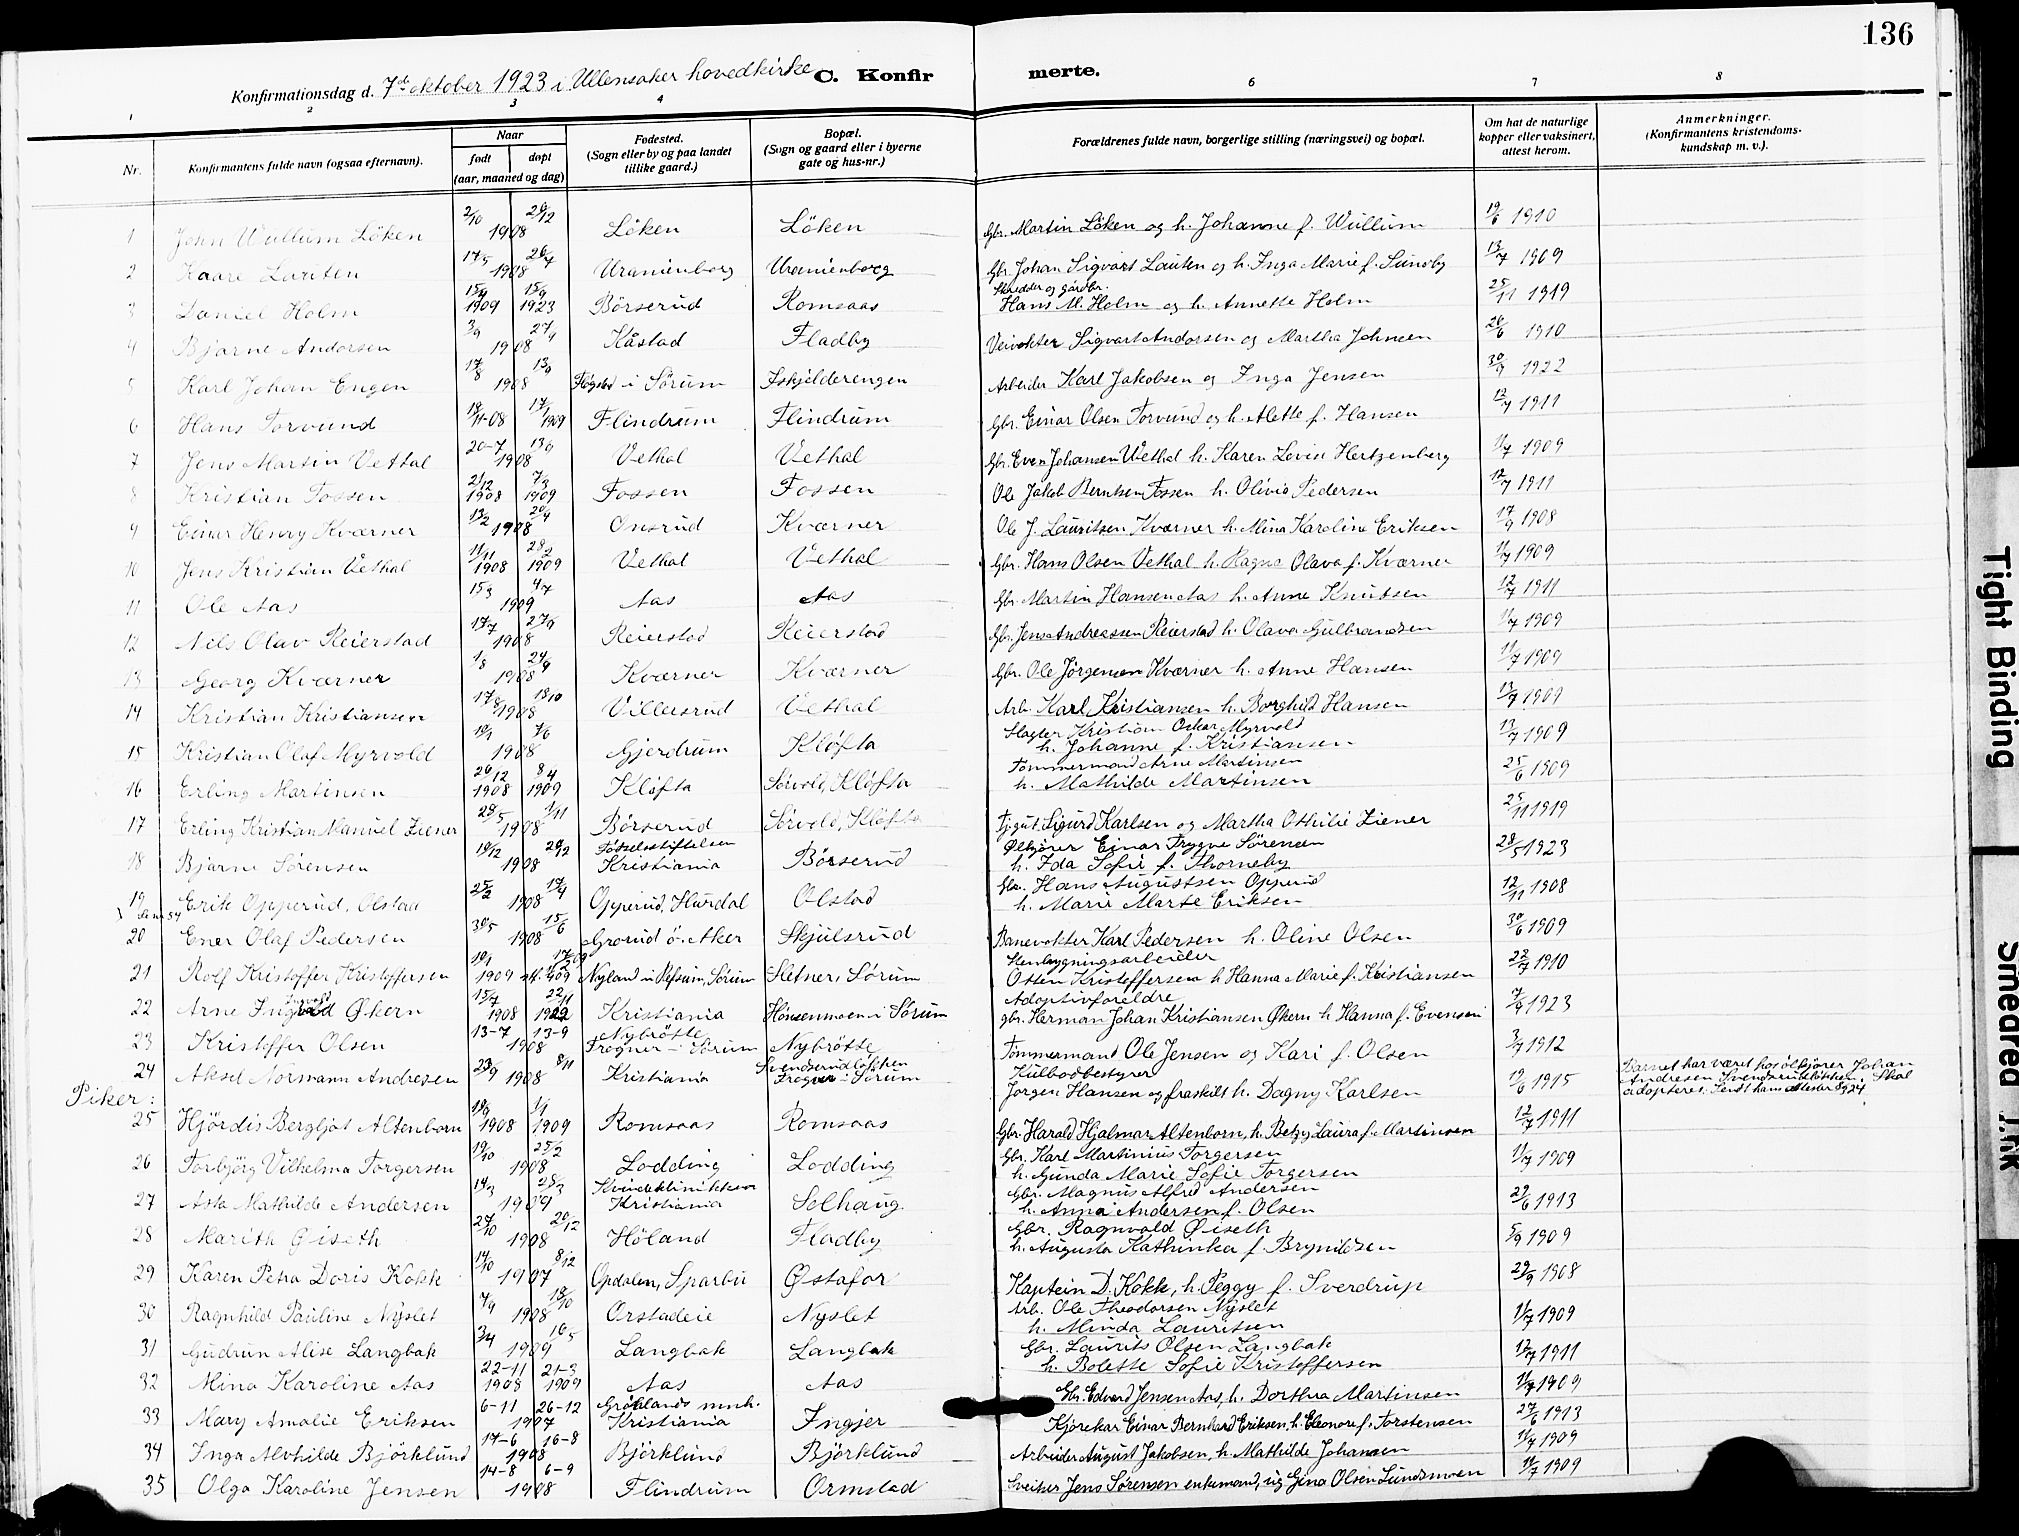 136
Konfirmationsdag d. 7de oktober 1923 i Ullensaker hovedkirke C. Konfirmerte.
1 2 3 4 6 7 8
Nr. Konfirmantens fulde navn (ogsaa efternavn). Naar født døpt (aar, maaned og dag) Fødested. (Sogn eller by og paa landet tillike gaard.) Bopæl. (Sogn og gaard eller i byerne gate og hus-nr.) Forældrenes fulde navn, borgerlige stilling (næringsvei) og bopæl. Om hat de naturlige kopper eller vaksinert, attest herom. Anmerkninger. (Konfirmantens kristendomskundskap m. v.).
1 John Wullum Löken 2/10 26/12 1908 Löken Löken Gbr. Martin Löken og h. Johanne f. Wullum 19/6 1910
2 Kaare Lauten 17/5 26/7 1908 Uranienborg Uranienborg Gbr. Johan Sigvart Lauten og h. Inga Marie f. Sundby 13/7 1909
3 Daniel Holm 1909 1923 Börserud Romsaas Skredder og gårdbr. Hans M. Holm og h. Annette Holm 25/11 1919
4 Bjarne Andersen 3/9 1908 Kåstad Fladby Veivokter Sigvart Andersen og Martha Johnsen 26/6 1910
5 Karl Johan Engen 17/8 1908 i Sörum Isskjelderengen Arbeider Karl Jakobsen og Inga Jensen 30/9 1922
6 Hans Torvund 18/11-08 17/1 1909 Flindrum Flindrum Gbr. Einar Olsen Torvund og h. Alette f. Hansen 12/7 1911
7 Jens Martin Vethal 20-7 13/9 1908 Vethal Vethal Gbr. Even Johansen Vethal h. Karen Lovise Hertzenberg 1/7 1909
8 Kristian Fossen 21/12 1908 7/3 1909 Fossen Fossen Ole Jakob Berntsen Fossen h. Olivia Pedersen 12/7 1911
9 Einar Henry Kværner 13/2 20/4 1908 Onsrud Kværner Ole J. Lauritsen Kværner h. Mina Karoline Eriksen 17/9 1908
10 Jens Kristian Vethal 11/11 1908 28/2 1909 Vethal Vethal Gbr. Hans Olsen Vethal h. Ragna Olava f. Kværner 1/7 1909
11 Ole Aas 15/3 4/7 1909 Aas Aas Gbr. Martin Hansen Aas h. Anne Knutsen 12/7 1911
12 Nels Olav Reierstad 17/7 27/9 1908 Reierstad Reierstad Gbr. Jens Andreassen Reierstad h. Olava Gulbrandsen 1/7 1909
13 Georg Kværner 1/8 24/9 1908 Kværner Kværner Gbr. Ole Jörgensen Kværner h. Anne Hansen 1/7 1909
14 Kristian Kristiansen 17/8 18/10 1908 Villersrud Vethal Arb. Karl Kristiansen h. Borghild Hansen 13/7 1909
15 Kristian Olaf Myrvold 7/6 1908 Gjerdrum Kløfta Slagter Kristian Oskar Myrvold h. Johanne f. Kristiansen 13/7 1909
16 Erling Martinsen 26/12 1908 8/4 1909 Kløfta Sørvold, Kløfta Tømmermand Arne Martinsen h. Mathilde Martinsen 25/6 1909
17 Erling Kristian Manuel Ziener 28/5 1/11 1908 Børserud Sørvold, Kløfta Tjgut. Sigurd Karlsen og Martha Othilie Ziener 25/11 1919
18 Bjarne Sörensen 19/12 1908 Fødselsstiftelsen Kristiania Börserud Ølkjører Einar Trygve Sörensen h. Ida Sofie f. Thorneby 28/5 1923
19 Erik Opperud, Olstad 25/2 17/4 1908 Opperud, Hurdal Olstad Gbr. Hans Augustsen Opperud h. Marie Marte Eriksen 12/11 1908
20 Ener Olaf Pedersen 30/5 15/6 1908 Grorud ö. Aker Skjulsrud Banevokter Karl Pedersen h. Oline Olsen 30/6 1909
21 Rolf Kristoffer Kristoffersen 10/1 1909 Nyland i Refsum, Sørum Sletner, Sørum Stenbygningsarbeider Otten Kristoffersen h. Hanna Marie f. Kristiansen 22/7 1910
22 Arne Ingvald Økern 15/7 1908 22/11 1922 Kristiania Hönsenmoen i Sörum Adoptivforeldre gbr. Herman Johan Kristiansen Økern h. Hanna f. Evensen 7/9 1923
23 Kristoffer Olsen 13-7 13-9 1908 Nybrötte Frogner - Sörum Nybrötte Tømmermand Ole Jensen og Kari f. Olsen 3/7 1912
24 Aksel Normann Andresen 23/9 8/11 1908 Kristiania Svendserudløkken Frogner i Sörum Kulbodbestyrer Jörgen Hansen og fraskilt h. Dagny Karlsen 19/6 1915 Barnet har været hos ølkjører Johan Andresen, Svendsrudløkken. Skal adopteres.
Piker:
25 Hjördis Bergljot Altenborn 1908 1/1 1909 Romsaas Romsaas Gbr. Harald Hjalmar Altenborn, h. Betzy Laura f. Martinsen 12/7 1911
26 Torbjörg Vilhelma Torgersen 19/10 25/12 1908 Lodding Lodding Gbr. Karl Martinius Torgersen h. Gunda Marie Sofie Torgersen 1/7 1909
27 Asta Mathilde Andersen 14/3 28/3 1909 Kvindeklinikken Kristiania Solhaug. Gbr. Magnus Alfred Andersen h. Anna Andersen f. Olsen 27/6 1913
28 Marith Øiseth 27/10 20/12 1908 Höland Fladby Gbr. Ragnvald Øiseth h. Augusta Kathinka f. Brynildsen 5/9 1909
29 Karen Petra Doris Kokk 14/10 8/12 1907 Opdalen, Sparbu Østafor Kaptein D. Kokk, h. Peggy f. Sverdrup 29/9 1908
30 Ragnhild Pauline Nyslet 7/9 18/10 1908 Orstadeie Nyslet Arb. Ole Theodorsen Nyslet h. Minda Lauritsen 1/7 1909
31 Gudrun Alise Langbak 3/4 16/5 1909 Langbak Langbak Gbr. Laurits Olsen Langbak h. Bolette Sofie Kristoffersen 12/7 1911
32 Mina Karoline Aas 22-11 1908 21-3 1909 Aas Aas Gbr. Edvard Jensen Aas, h. Dorthea Martinsen 1/7 1909
33 Mary Amalie Eriksen 6-11 26-12 1907 Grønlands mnh. Kristiania Ingjer Kjörekar Einar Bernhard Eriksen h. Eleonore f. Torstensen 27/6 1913
34 Inga Alvhilde Björklund 17-6 16-8 1908 Björklund Björklund Arbeider August Jakobsen, h. Mathilde Johansen 1/7 1909
35 Olga Karoline Jensen 14-8 6-9 1908 Flindrum Ormstad Sveitser Jens Sørensen enkemand, ug Gina Olsen Lundsmoen 1/7 1909
Tight Binding
Smeared Ink